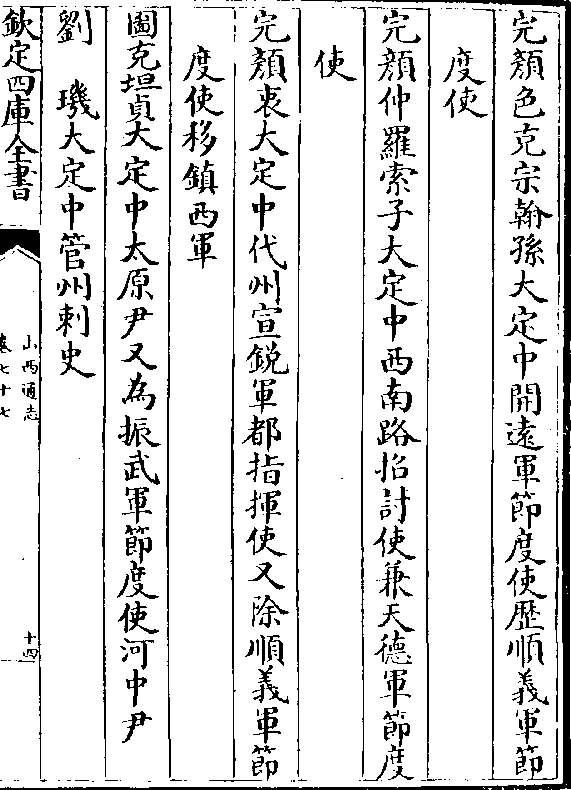 完顏色克宗翰孫大定中開遠軍節度使歷順義軍節
度使
完顏仲羅索子大定中西南路招討使兼天德軍節度
使
完顏衷大定中代州宣銳軍都指揮使又除順義軍節
度使移鎮西軍
圖克坦貞大定中太原尹又為振武軍節度使河中尹
劉　璣大定中管州刺史
欽定四庫全書
山西通志
卷七十七
十四